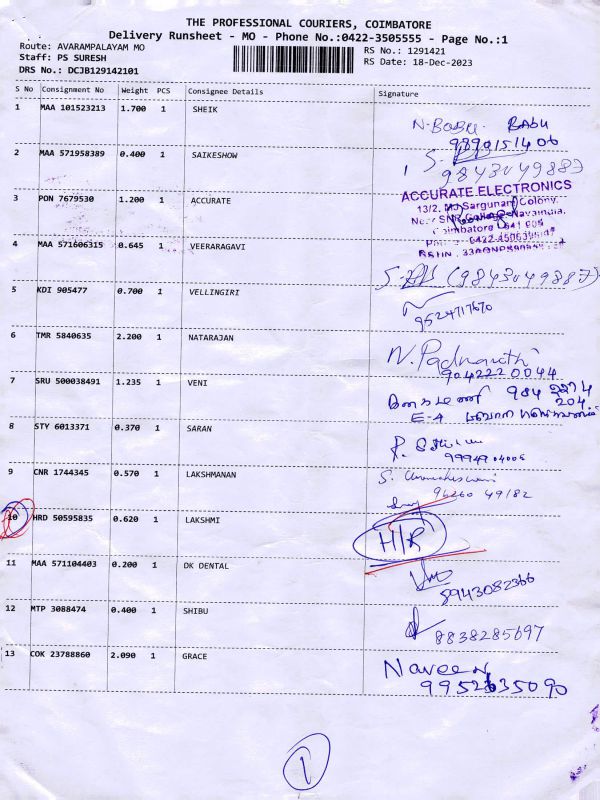 THE PROFESSIONAL COURIERS, COIMBATORE
Delivery Runsheet - MO - Phone No.:0422-3505555 - Page No.:1
Route: AVARAMPALAYAM MO
RS No.: 1291421
Staff: PS SURESH
RS Date: 18-Dec-2023
DRS No.: DCJB129142101
S No Consignment No Weight PCS Consignee Details Signature
1 MAA 101523213 1.700 1 SHEIK
N-BABU BABU
9890151406
2 MAA 571958389 0.400 1 SAIKESHOW
9843049887
3 PON 7679530 1.200 1 ACCURATE
ACCURATE ELECTRONICS
13/2, Sargunam Colony,
Navaindia,
Coimbatore
4 MAA 571606315 0.645 1 VEERARAGAVI
(9843049887)
5 KDI 905477 0.700 1 VELLINGIRI
9524717670
6 TMR 5840635 2.200 1 NATARAJAN
9042220044
7 SRU 500038491 1.235 1 VENI
984 2274
204
E-A
8 STY 6013371 0.370 1 SARAN
9994904005
9 CNR 1744345 0.570 1 LAKSHMANAN
96260 49182
10 HRD 50595835 0.620 1 LAKSHMI
H/R
11 MAA 571104403 0.200 1 DK DENTAL
8943082366
12 MTP 3088474 0.400 1 SHIBU
8838285697
13 COK 23788860 2.090 1 GRACE
Naveen
9952635090
1